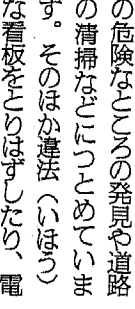 の危険なところの発見や道路
の清掃などにつとめていま
す。そのほか違法（いほう）
な看板をとりはずしたり、電